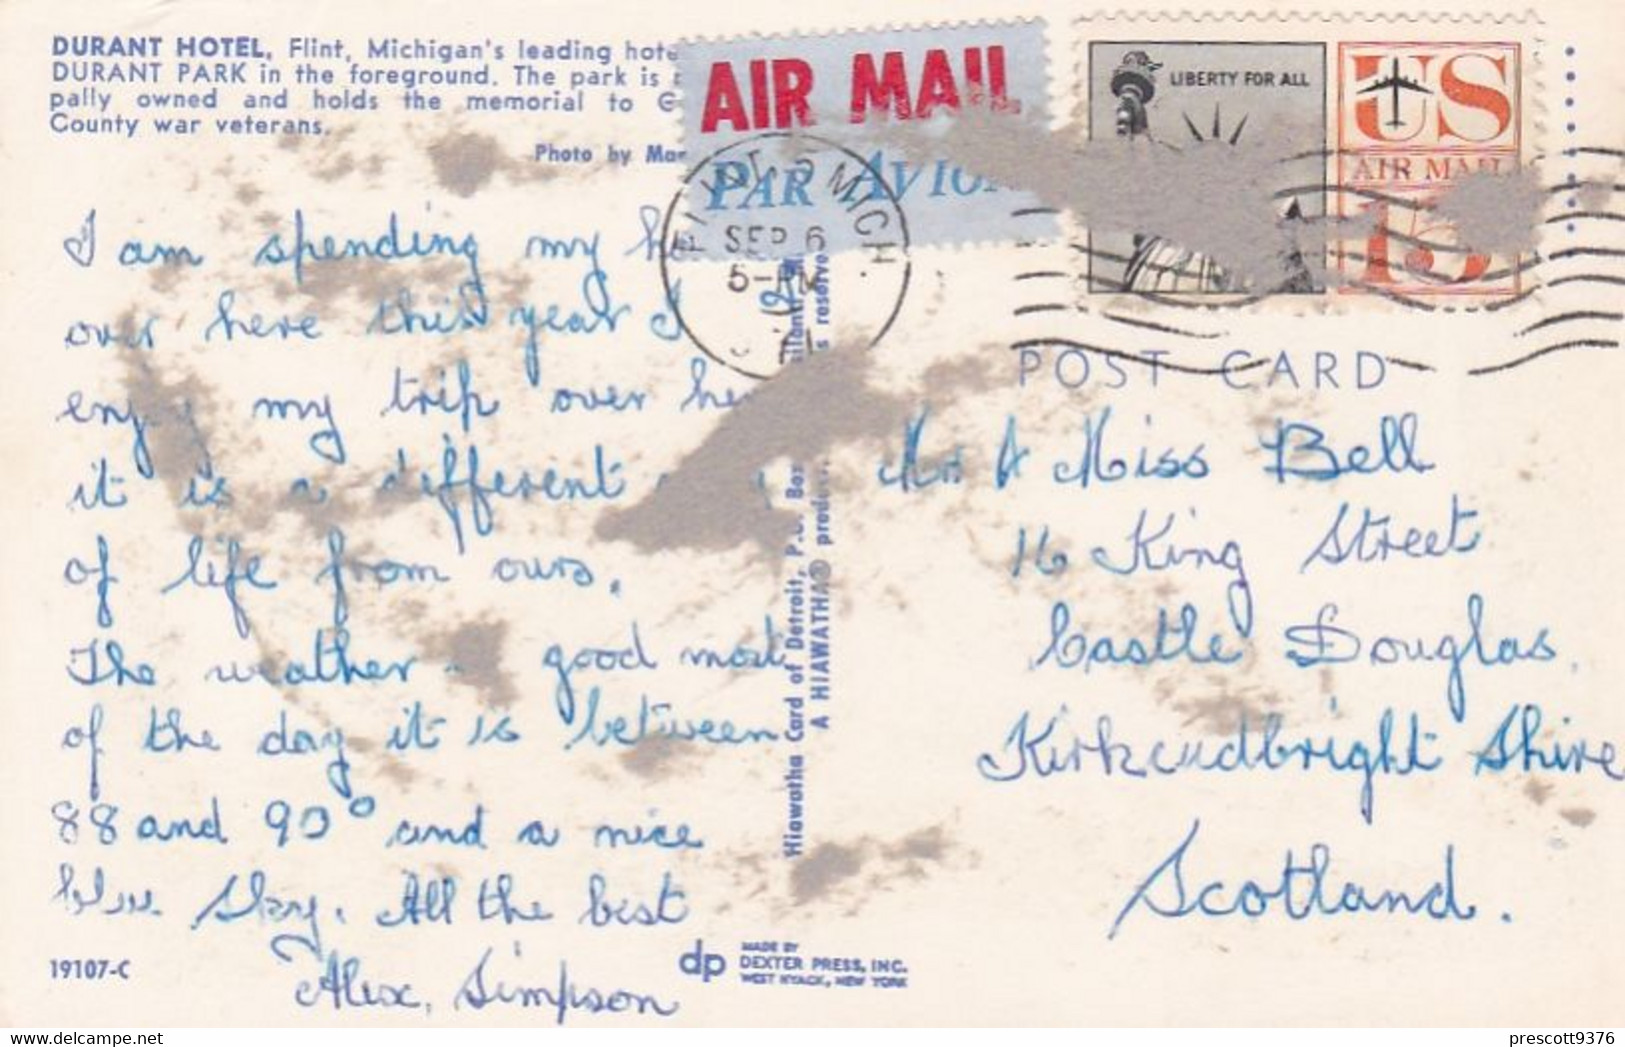 DURANT HOTEL, Flint, Michigan's leading
DURANT PARK in the foreground. The park is
pally owned and holds the memorial to
County war veterans.
Photo by
AIR MAIL
PAR AVION
LIBERTY FOR ALL
US
AIR MAIL
15
FLINT MICH.
SEP 6
5-PM
I am spending my
over here this year I
enjoy my trip over
it is a different
of life from ours.
The weather good most
of the day it is between
88 and 90° and a nice
blue sky. All the best
Alex. Simpson
19107-C
dp
MADE BY
DEXTER PRESS, INC.
WEST NYACK, NEW YORK
Hiawatha Card of Detroit, P.O. Box
A HIAWATHA® 
POST CARD
Mr & Miss Bell
16 King Street
Castle Douglas,
Kirkcudbright Shire
Scotland.
prescott9376